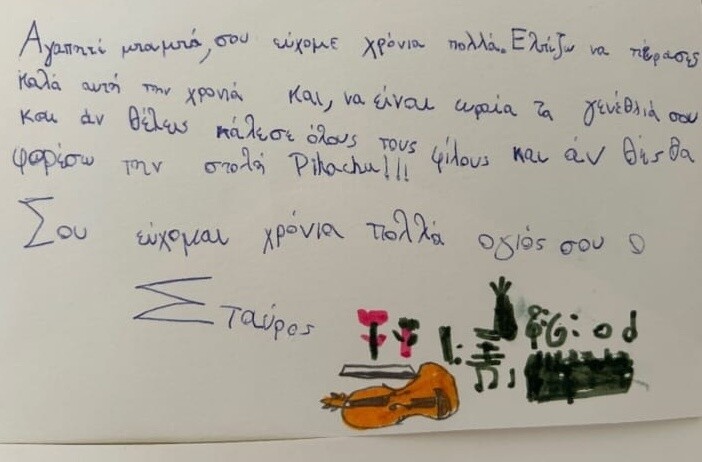 Αγαπητέ μπαμπά, σου εύχομε χρόνια πολλά. Ελπίζω να πέρασες
καλά αυτή την χρονιά και, να είναι ωραία τα γενέθλιά σου
και άν θέλεις κάλεσε όλους τους φίλους και άν θές θα
φορέσω την στολή Pikachu!!!
Σου εύχομαι χρόνια πολλά ογιός σου ο
Σταύρος